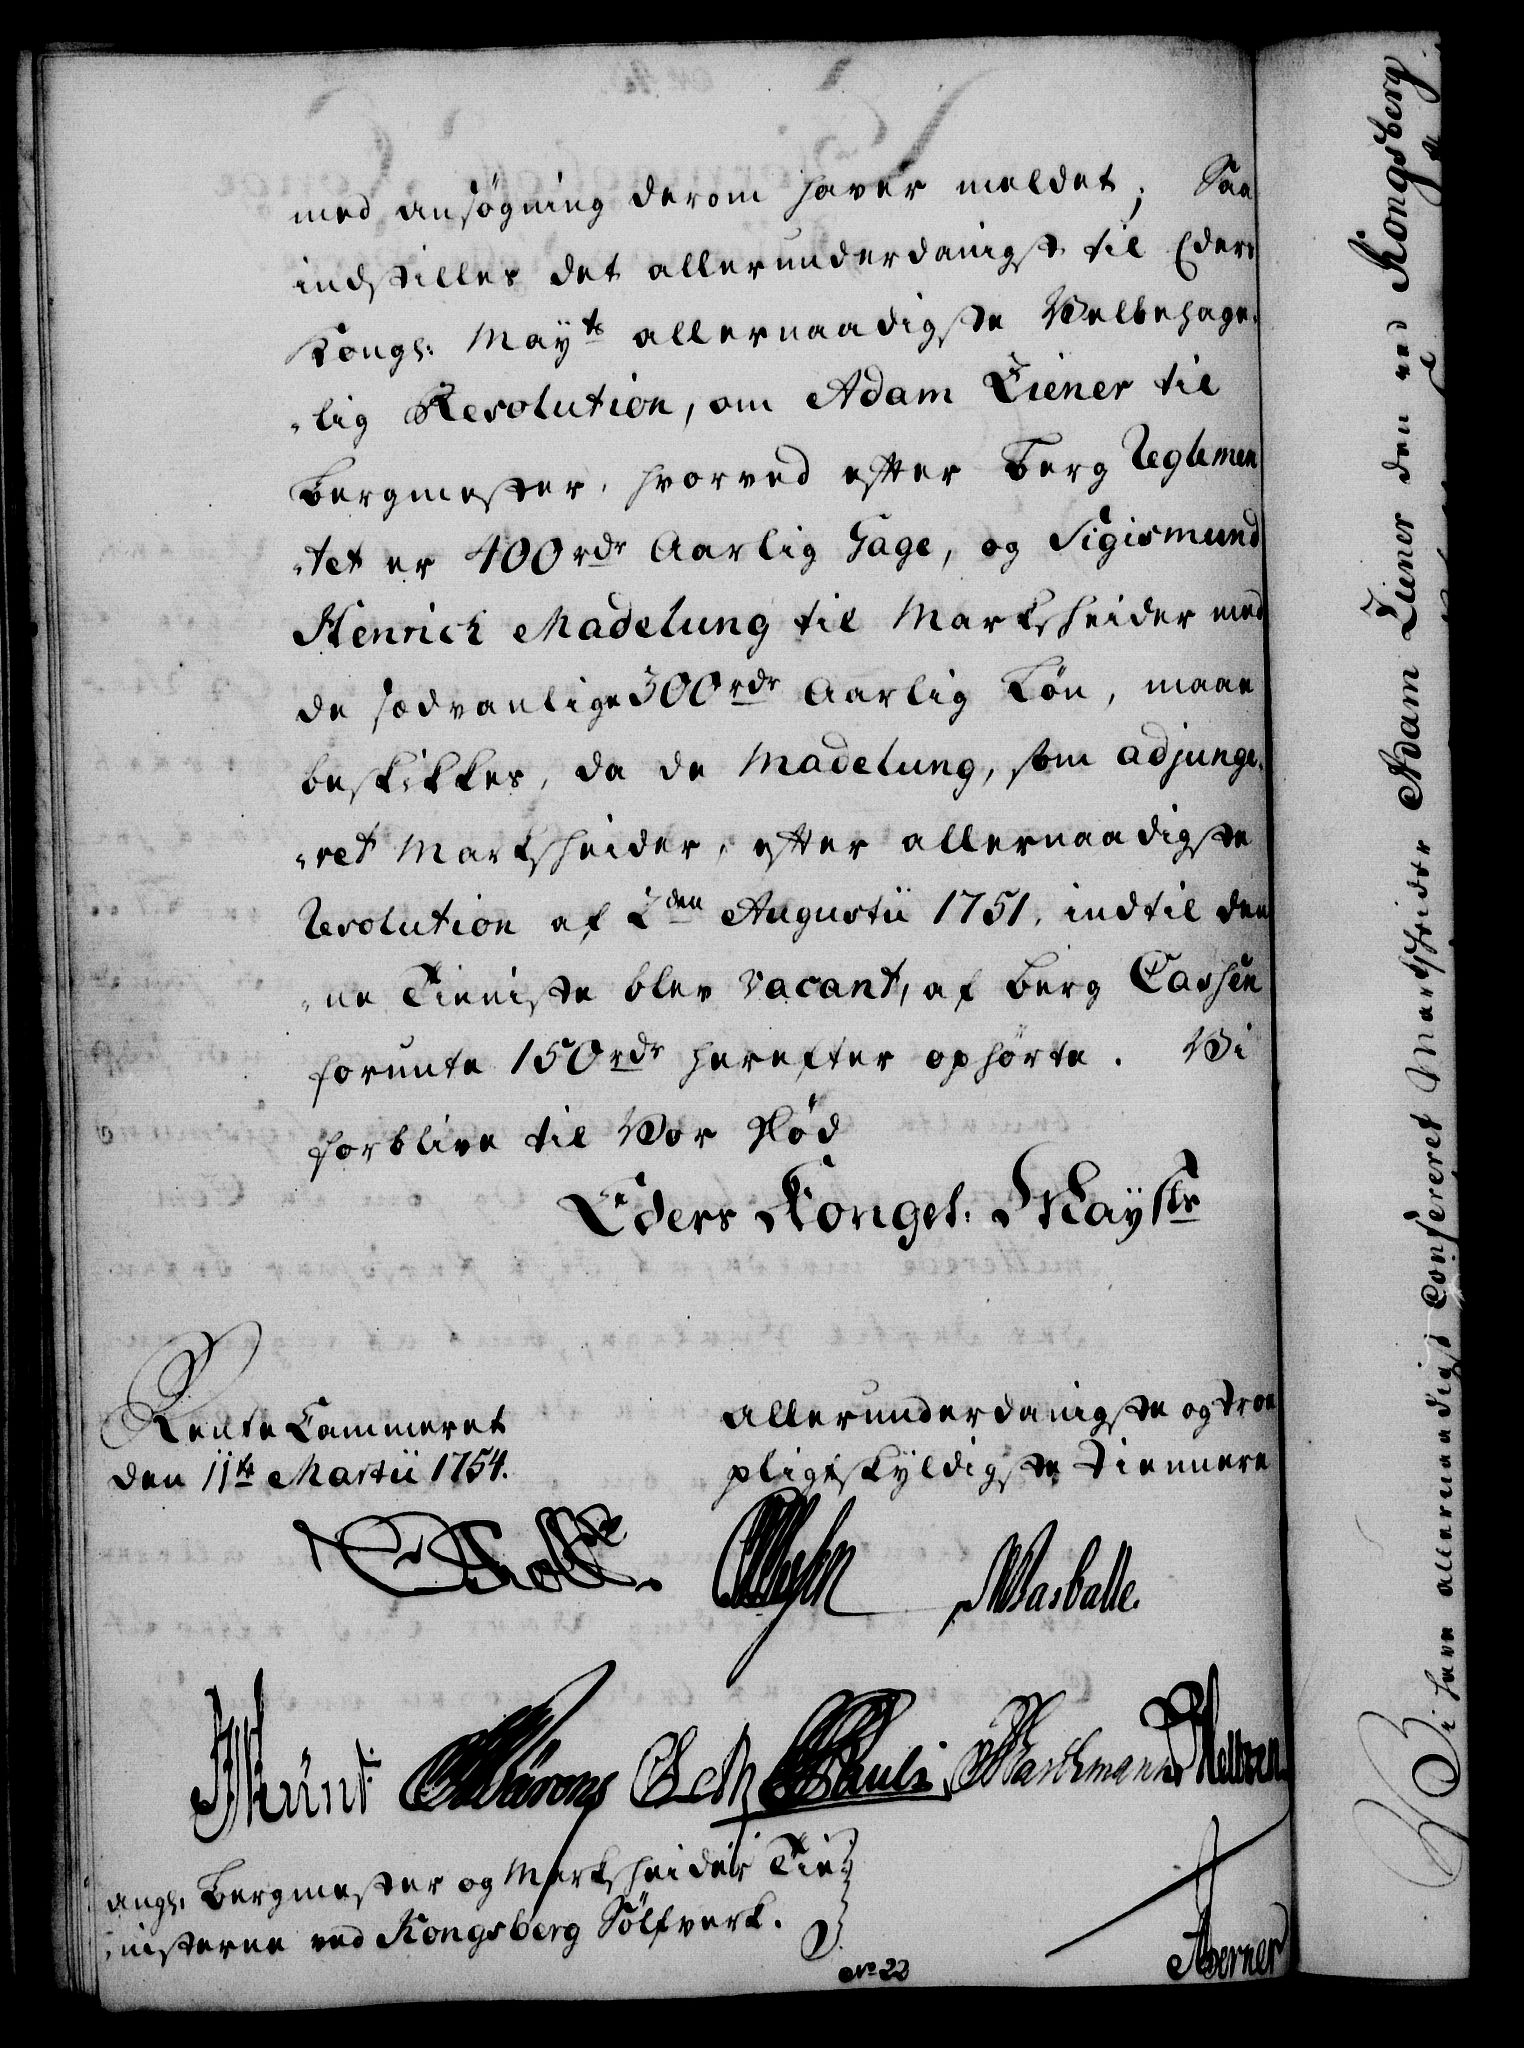 med ansøgning derom haver meldet; Saa
indstilles det allerunderdanigst til Eders
Kongl: Mayts allernaadigste Velbehage-
„lig Resolution, om Adam Ziener til
Bergmester, hvorved efter Berg Reglemen
„tet er 400 rdr Aarlig Gage, og Sigismund
Henrich Madelung til Markscheider med
de sædvanlige 300 rdr Aarlig Løn, maae
beskikkes, da de Madelung, som adjunge-
„ret Markscheider, efter allernaadigste
Resolution af 2den Augustii 1751. indtil den
„ne Tieniste blev vacant, af Berg Cassen
forunte 150 rdr herefter ophørte. Vi
forblive til Vor Død
Eders Kongel. Maysts
Rente Cammeret
den 11te Martii 1754.
allerunderdanigste og troe
pligtskyldigste Tiennere
Holst.
Wasballe.
Pauli
Barthmann
Meltzen
angl. Bergmester og Markscheider Tie-
„nisterne ved Kongsberg Sølfverk.
No 22
Aberner
Vi have allernaadigst Confereret Markscheider Adam Ziener den ved Kongsberg